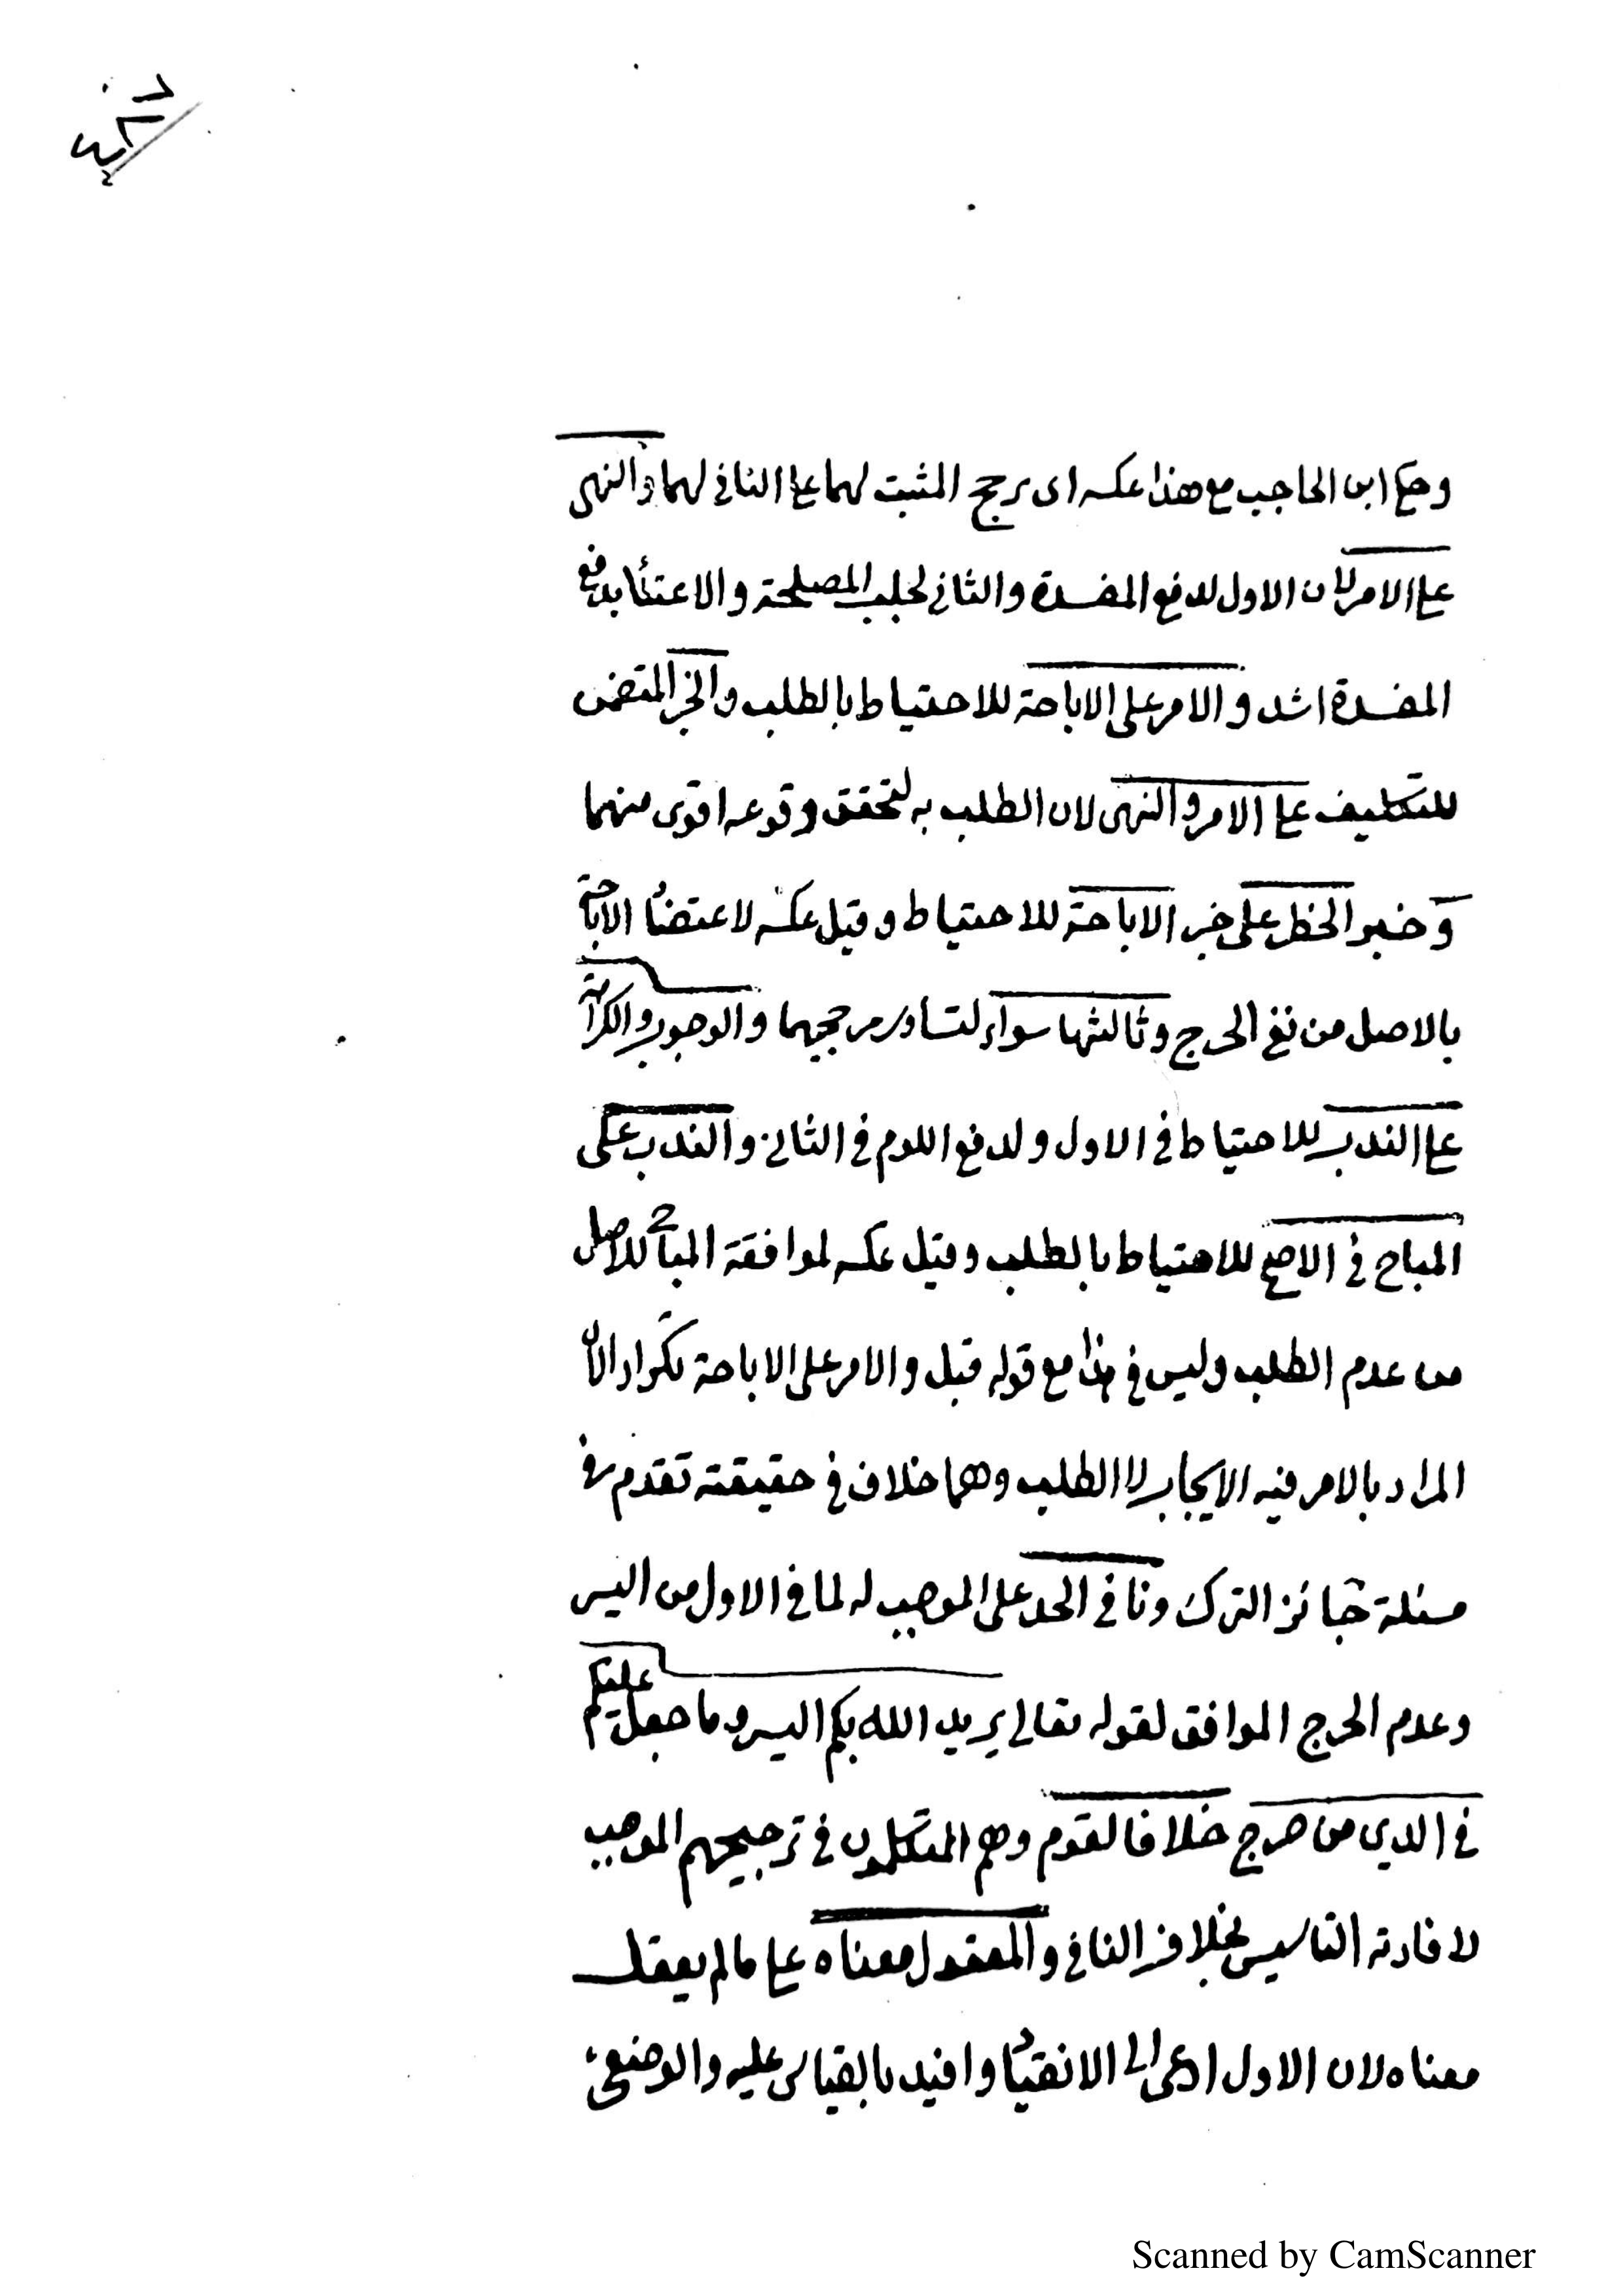 وحكى ابن الحاجب مع هذا عكسه اى يرجح المثبت لهما على النافى لهما والنهى
على الامر لان الاول لدفع المفسدة والثانى لجلب المصلحة والاعتناء بدفع
المفسدة اشد والامر على الاباحة للاحتياط بالطلب والخبر المتضمن
للتكليف على الامر والنهى لان الطلب به لتحقق وقوعه اقوى منهما
وخبر الحظر على خبر الاباحة للاحتياط وقيل عكسه لاعتضاد الاباحة
بالاصل من نفى الحرج وثالثها سواء لتساوى مرجحيهما والوجوب والكراهة
على الندب للاحتياط فى الاول ولدفع اللوم فى الثانى والندب على
المباح فى الاصح للاحتياط بالطلب وقيل عكسه لموافقة المباح للاصل
من عدم الطلب وليس فى هذا مع قوله قبل والامر على الاباحة تكرار لان
المراد بالامر فيه الايجاب لا الطلب وهما خلاف فى حقيقته تقدم فى
مسئلة جائز الترك ونافى الحد على الموجب له لما فى الاول من اليسر
وعدم الحرج الموافق لقوله تعالى يريد الله بكم اليسر وما جعل عليكم
فى الدين من حرج خلافا لقوم وهم المتكلمون فى ترجيحهم الموجب
لافادته التاسيس بخلاف النافى والمعقول معناه على ما لم يعقل
معناه لان الاول ادعى الى الانقياد وافيد بالقياس عليه والوضعى
Scanned by CamScanner